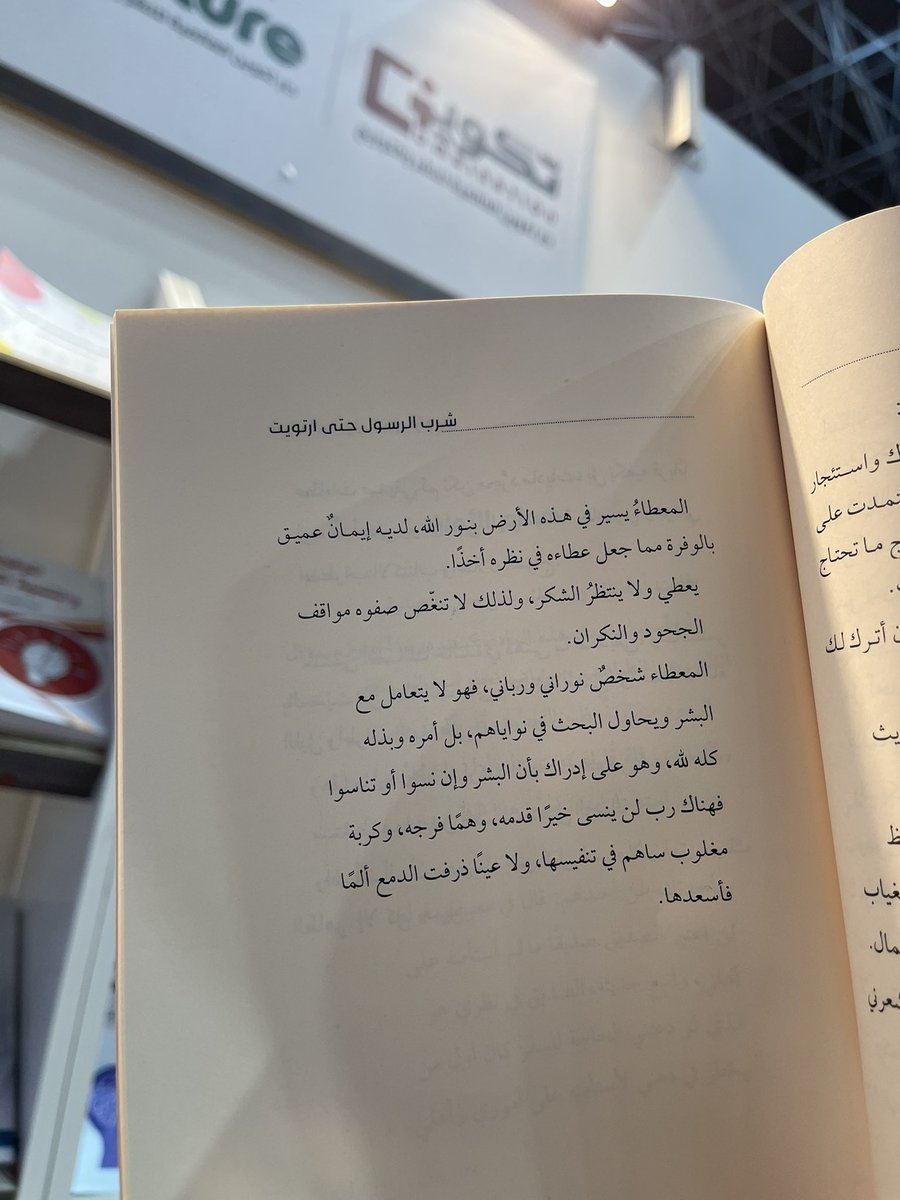 ture
تكوين
شرب الرسول حتى ارتويت
المعطاءُ يسير في هذه الأرض بنور الله، لديه إيمانٌ عميق
بالوفرة مما جعل عطاءه في نظره أخذًا.
يعطي ولا ينتظرُ الشكر، ولذلك لا تنغّص صفوه مواقف
الجحود والنكران.
المعطاء شخصٌ نوراني ورباني، فهو لا يتعامل مع
البشر ويحاول البحث في نواياهم، بل أمره وبذله
كله لله، وهو على إدراك بأن البشر وإن نسوا أو تناسوا
فهناك رب لن ينسى خيرًا قدمه، وهمًا فرجه، وكربة
مغلوب ساهم في تنفيسها، ولا عينًا ذرفت الدمع ألمًا
فأسعدها.
ك واستئجار
تمدت على
ج ما تحتاج
ن أترك لك